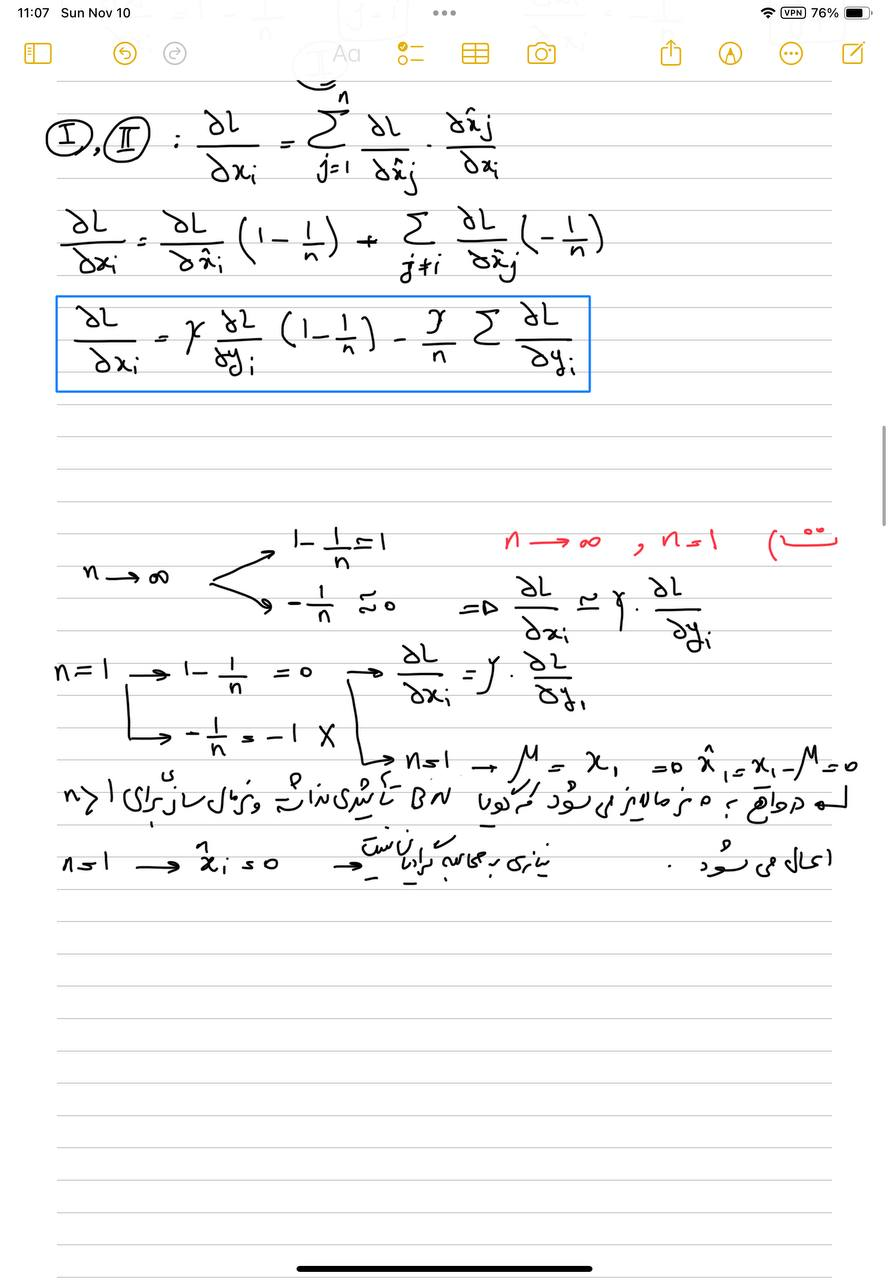 11:07 Sun Nov 10 VPN 76%
Aa
I, II : ∂L/∂xᵢ = Σ_{j=1}^{n} ∂L/∂x̂ⱼ · ∂x̂ⱼ/∂xᵢ
∂L/∂xᵢ = ∂L/∂x̂ᵢ (1 - 1/n) + Σ_{j≠i} ∂L/∂x̂ⱼ (-1/n)
∂L/∂xᵢ = γ ∂L/∂yᵢ (1 - 1/n) - γ/n Σ ∂L/∂yᵢ
ت) n → ∞ , n = 1
n → ∞ 1 - 1/n = 1
- 1/n ≈ 0 ⇒ ∂L/∂xᵢ ≃ γ · ∂L/∂yᵢ
n = 1 → 1 - 1/n = 0 → ∂L/∂xᵢ = γ · ∂L/∂y₁
→ - 1/n = -1 ×
→ n = 1 → μ = x₁ ⇒ x̂₁ = x₁ - μ = 0
در واقع به 0 نرمالایز می شود که گویا BN تأثیری نداشته و نرمال سازی برای n > 1
اعمال می شود .
n = 1 → x̂ᵢ = 0 → نیازی به محاسبه گرادیان نیست